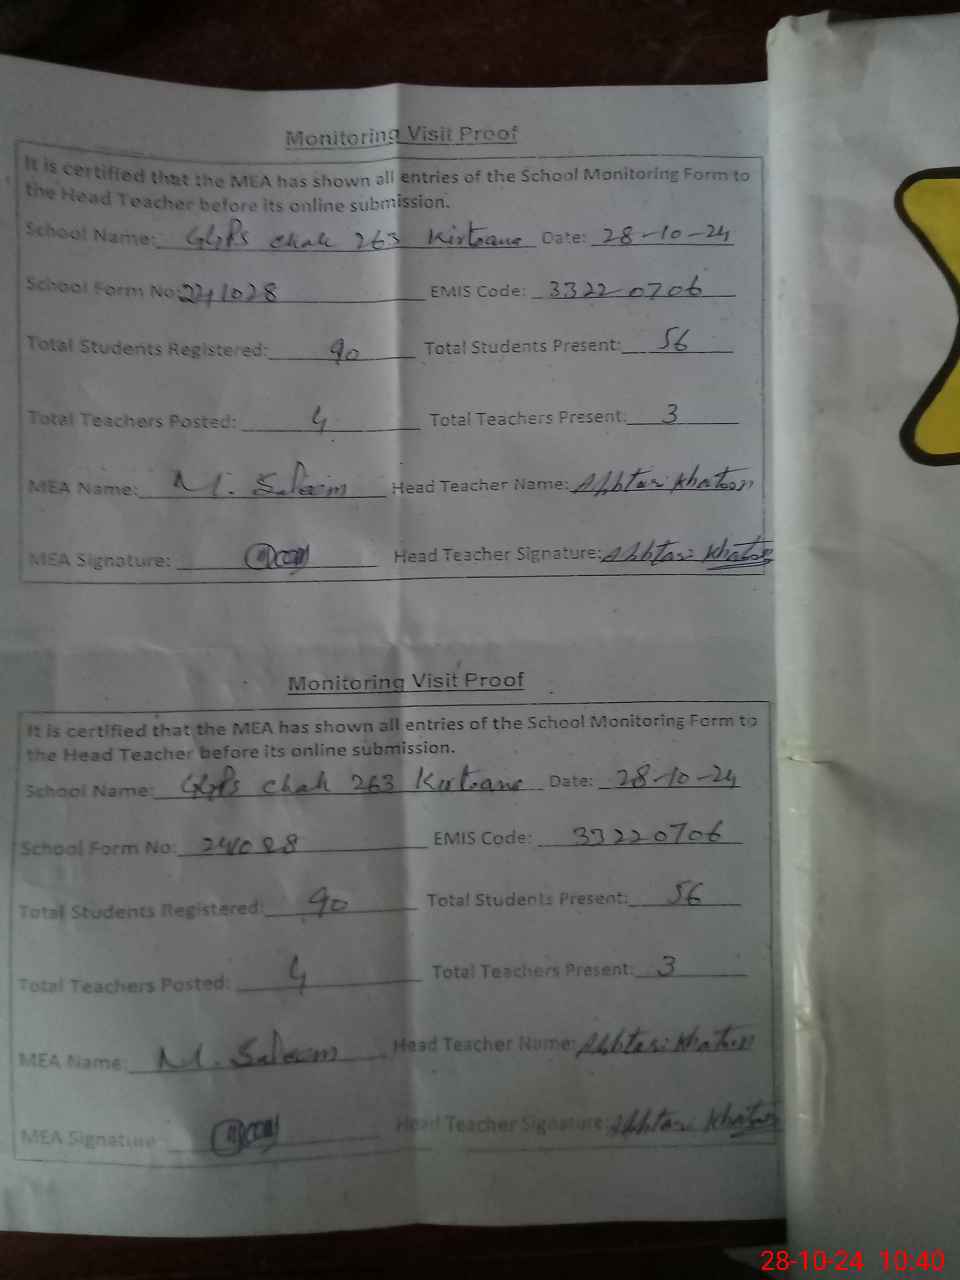 Monitoring Visit Proof
It is certified that the MEA has shown all entries of the School Monitoring Form to
the Head Teacher before its online submission.
School Name: GGPS chak 263 Kirtana Date: 28-10-24
School Form No: 241028 EMIS Code: 33220706
Total Students Registered: 90 Total Students Present: 56
Total Teachers Posted: 4 Total Teachers Present: 3
MEA Name: M. Saleem Head Teacher Name: Akhtari Khatoon
MEA Signature: Head Teacher Signature: Akhtari Khatoon
Monitoring Visit Proof
It is certified that the MEA has shown all entries of the School Monitoring Form to
the Head Teacher before its online submission.
School Name: GGPS chak 263 Kirtana Date: 28-10-24
School Form No: 241028 EMIS Code: 33220706
Total Students Registered: 90 Total Students Present: 56
Total Teachers Posted: 4 Total Teachers Present: 3
MEA Name: M. Saleem Head Teacher Name: Akhtari Khatoon
MEA Signature Head Teacher Signature: Akhtari Khatoon
28-10-24 10:40